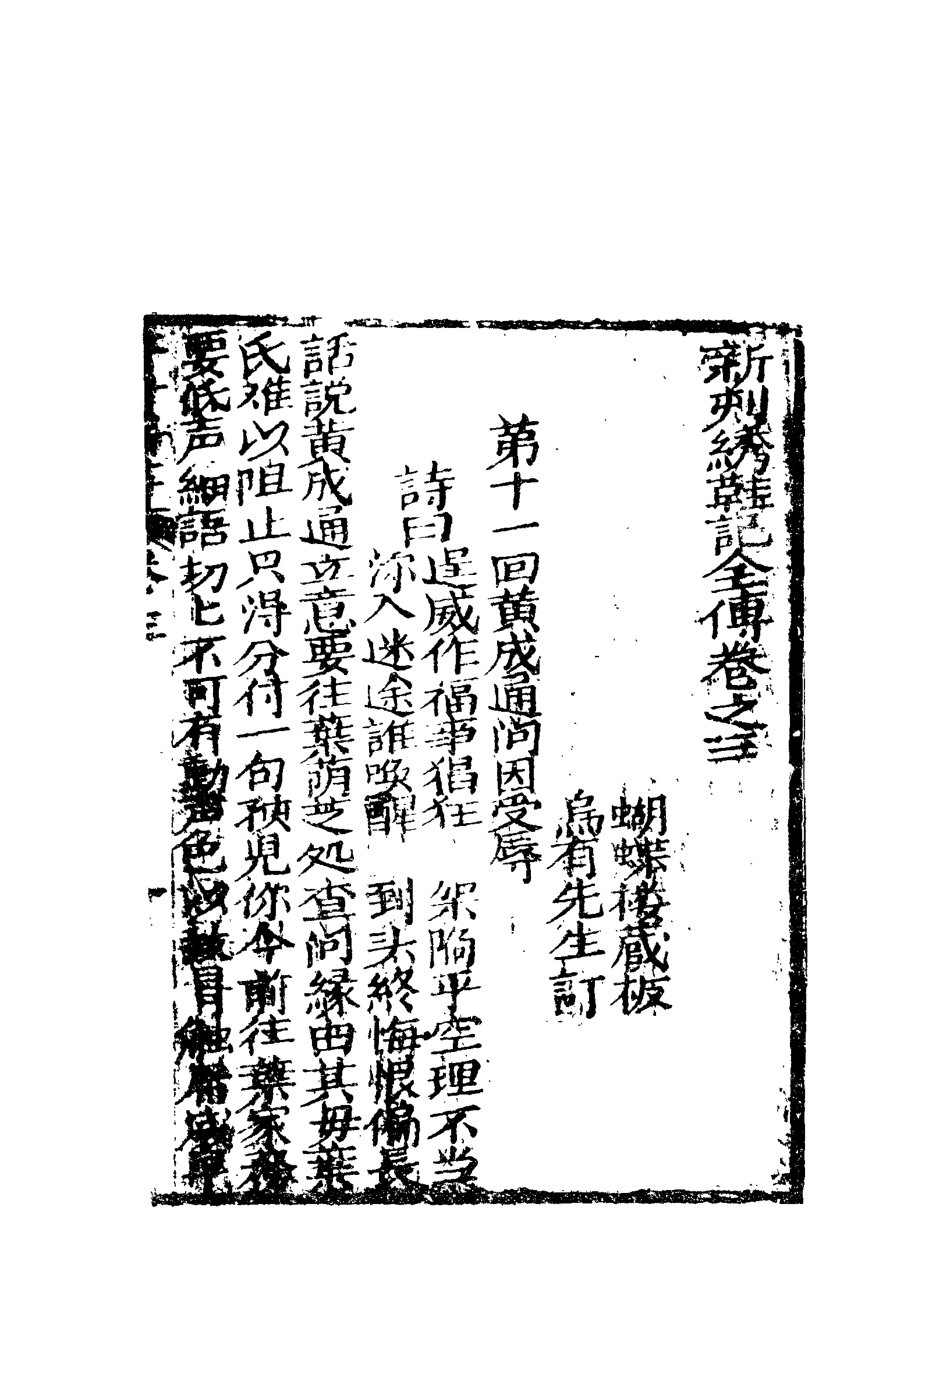 新刻綉鞋記全傳卷之三
蝴蝶楼蔵板
烏有先生訂
第十一回黄成通问因受辱
詩曰逞威作福事猖狂　架陷平空理不当
你入迷途誰喚醒　到头終悔恨偏長
話説黄成通立意要往葉荫芝处查问縁由其毋葉
氏难以阻止只得分付一句孩児你今前往葉家務
要低声細語切匕不可有動声色
卷三